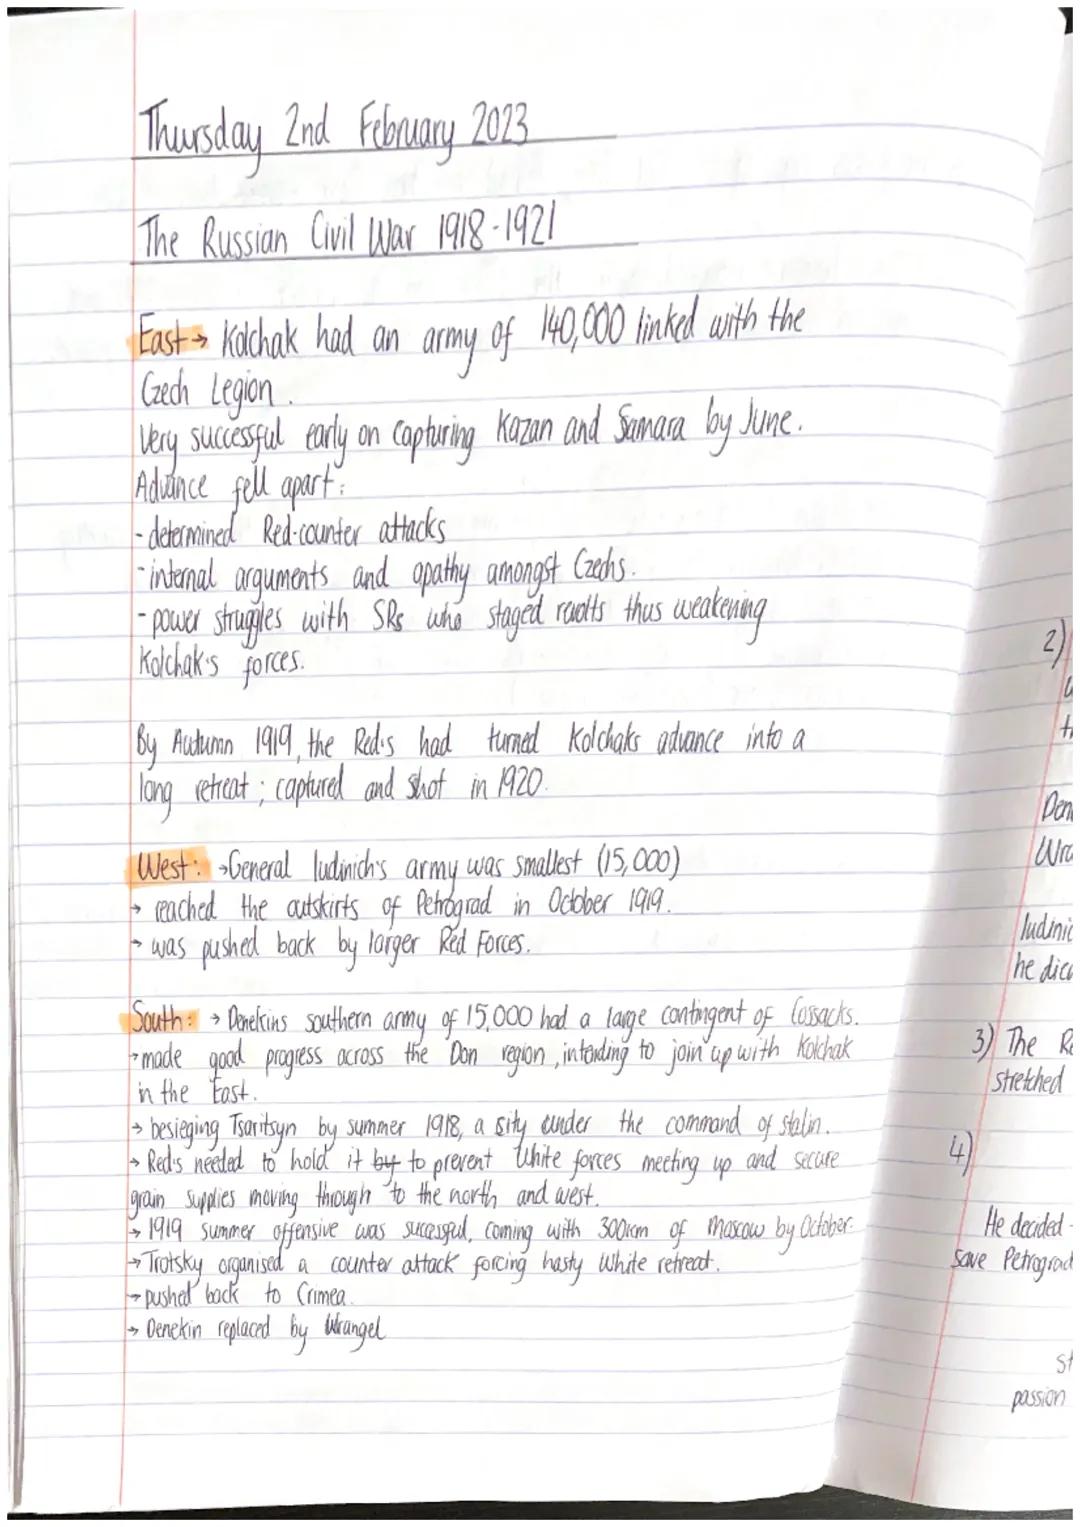 Thursday 2nd February 2023
The Russian Civil War 1918-1921
East → Kolchak had an army of 140,000 linked with the
Czech Legion.
Very successful early on capturing Kazan and Samara by June.
Advance fell apart:
- determined Red-counter attacks
- internal arguments and apathy amongst Czechs.
- power struggles with SRs who staged revolts thus weakening
Kolchak's forces.
By Autumn 1919, the Red's had turned Kolchaks advance into a
long retreat; captured and shot in 1920.
West: → General Iudinich's army was smallest (15,000)
→ reached the outskirts of Petrograd in October 1919.
→ was pushed back by larger Red Forces.
South: → Denekins southern army of 15,000 had a large contingent of Cossacks.
→ made good progress across the Don region, intending to join up with Kolchak
in the East.
→ besieging Tsaritsyn by summer 1918, a sity under the command of stalin.
→ Red's needed to hold it by to prevent White forces meeting up and secure
grain supplies moving through to the north and west.
→ 1919 summer offensive was sucessful, coming with 300km of Moscow by October.
→ Trotsky organised a counter attack forcing hasty White retreat.
→ pushed back to Crimea.
→ Denekin replaced by Wrangel
2)
Den
Wra
Iudinic
he dica
3) The Re
stretched
4)
He decided -
save Petrograd
st
passion